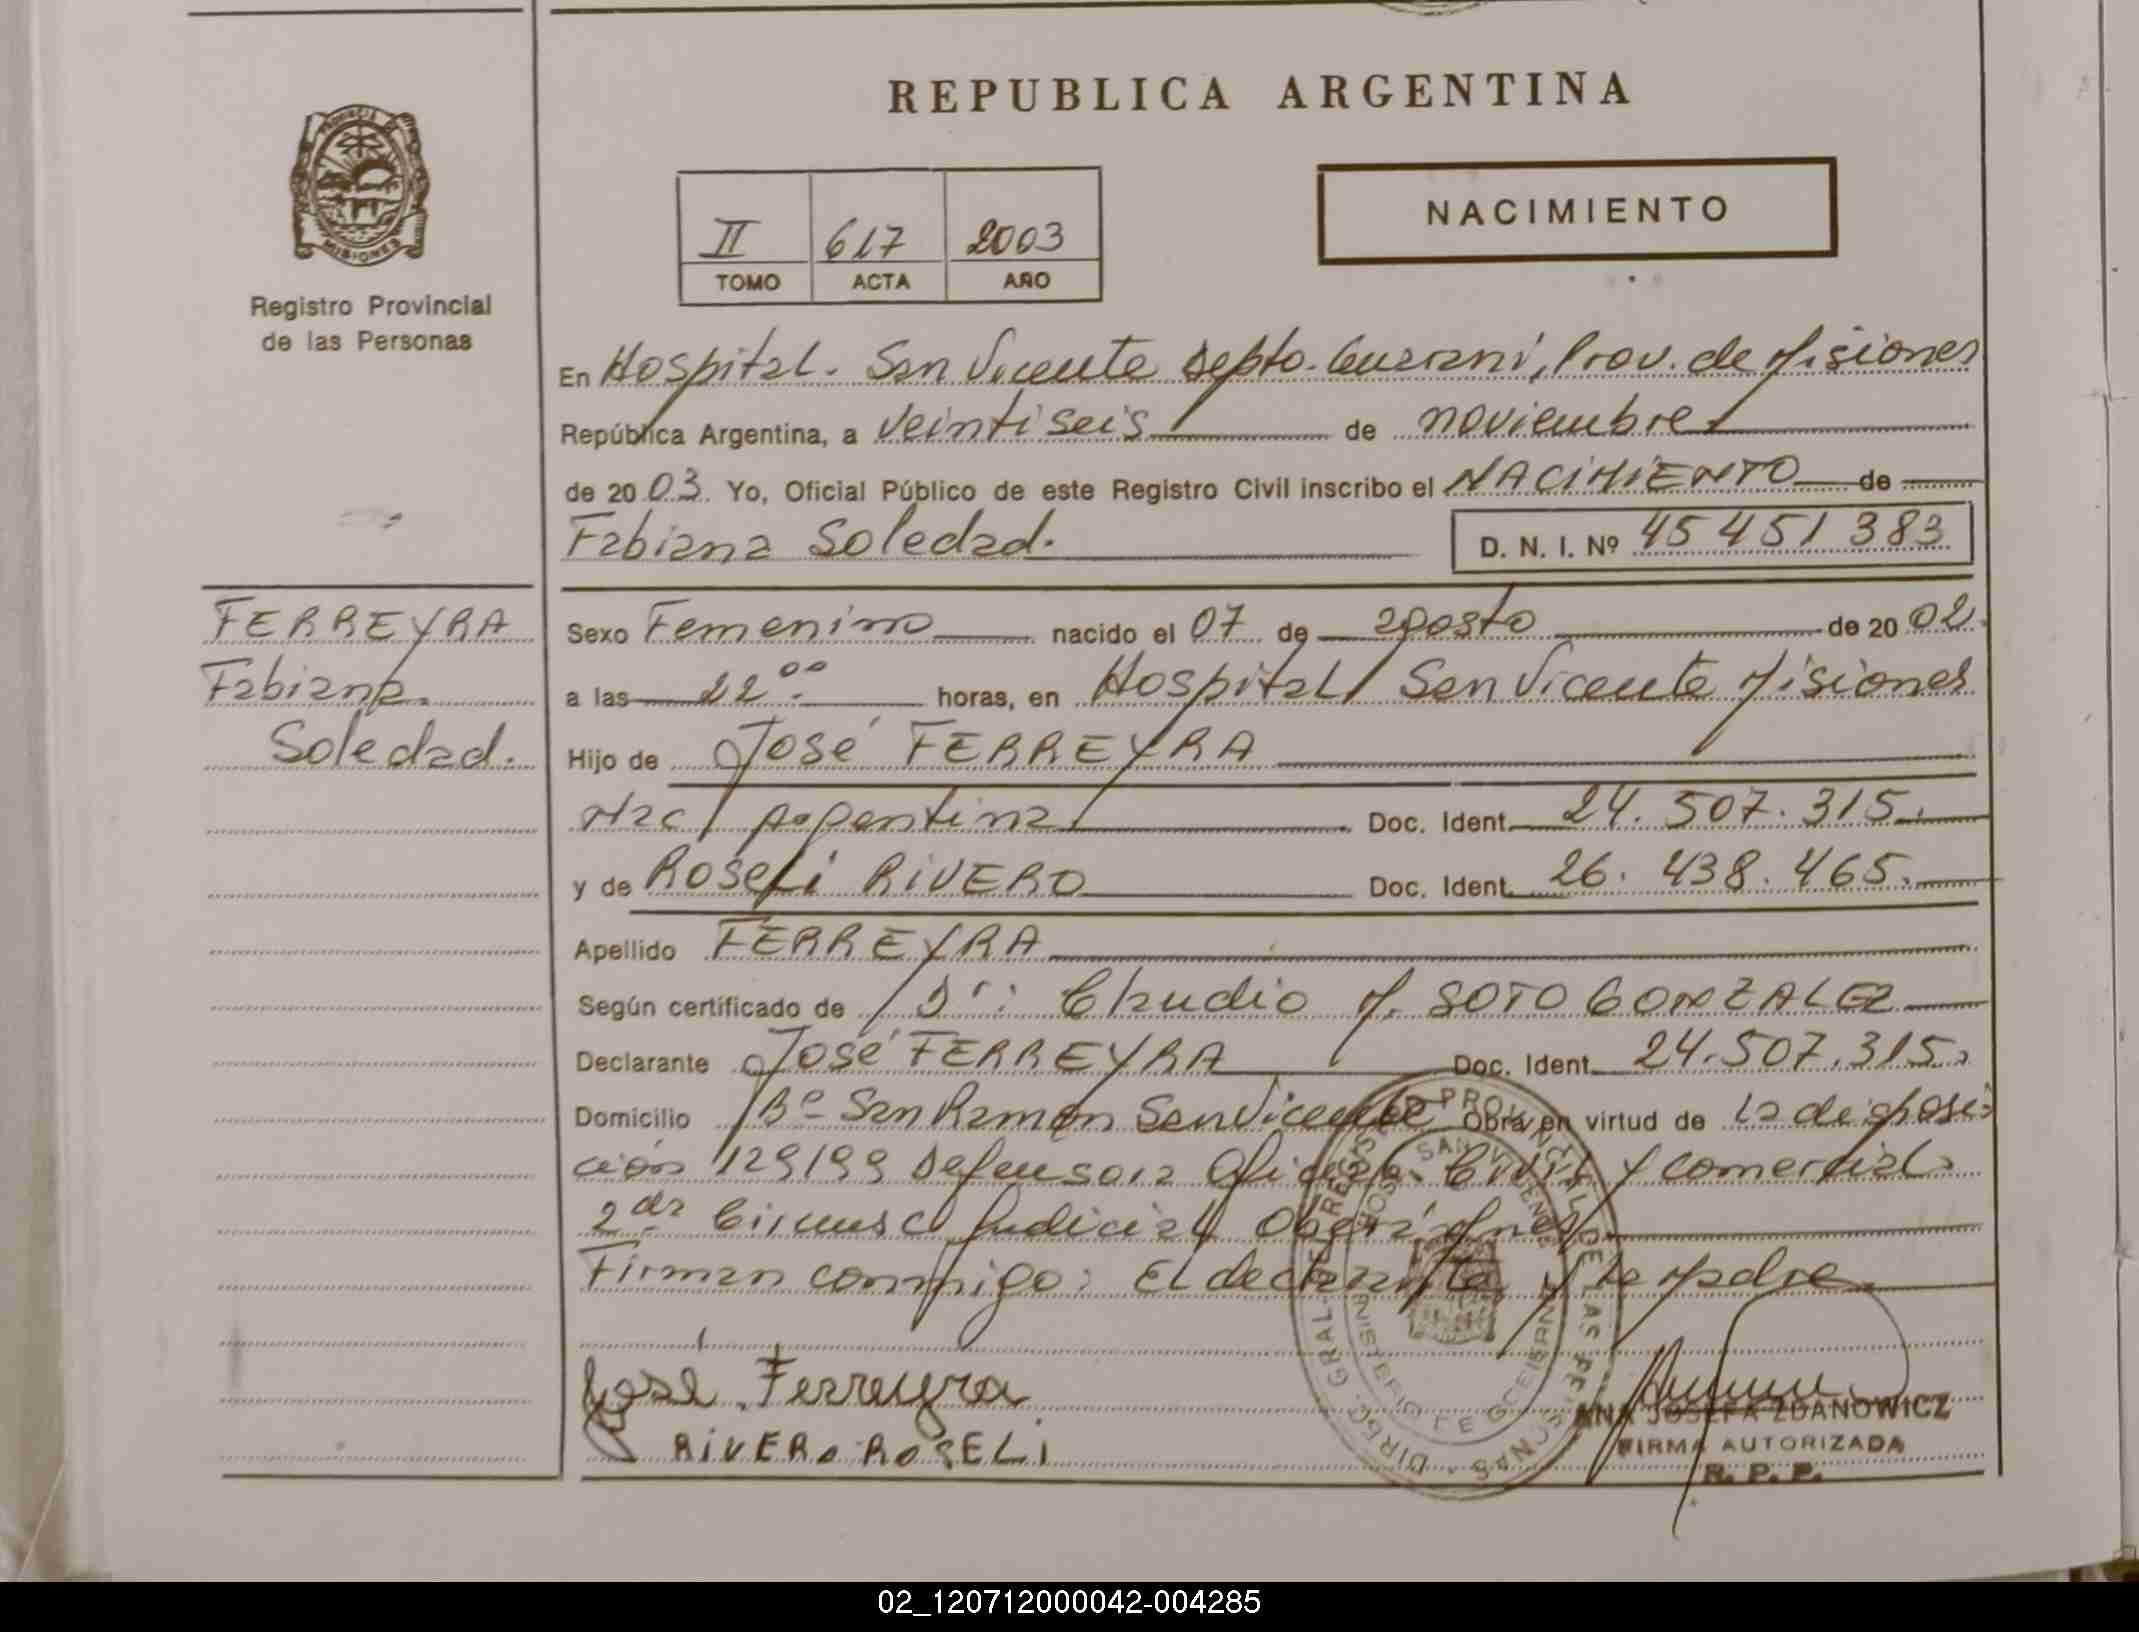 REPUBLICA ARGENTINA
PROVINCIA DE
MISIONES
Registro Provincial
de las Personas
II 617 2003
TOMO ACTA AÑO
NACIMIENTO
En Hospital. San Vicente Depto. Guarani, Prov. de Misiones
República Argentina, a veintiseis de noviembre
de 2003. Yo, Oficial Público de este Registro Civil inscribo el NACIMIENTO de
Fabiana Soledad.
D. N. I. Nº 45 451 383
FERREYRA
Fabiana
Soledad.
Sexo Femenino nacido el 07 de agosto de 2002.
a las 22⁰⁰ horas, en Hospital San Vicente Misiones
Hijo de José FERREYRA
Nac/ Argentina Doc. Ident. 24.507.315.
y de ROSELi RiVERO Doc. Ident. 26.438.465.
Apellido FERREYRA
Según certificado de Dr: Claudio M. SOTO GONZALEZ
Declarante José FERREYRA Doc. Ident. 24.507.315.
Domicilio Bº San Ramon San Vicente Obra en virtud de la disposi
ción 129/99 Defensora Oficial Civil y comercial
2da Circunsc Judicial Oberá Mnes
Firman conmigo: El declarante y la Madre
José Ferreyra
RiVERO ROSELi
DIREC. GRAL. DEL REGISTRO PROVINCIAL DE LAS PERSONAS
HOSP. SAN VICENTE
MINISTERIO DE GOBIERNO
ANA JOSEFA ZDANOWICZ
FIRMA AUTORIZADA
R. P. P.
02_120712000042-004285